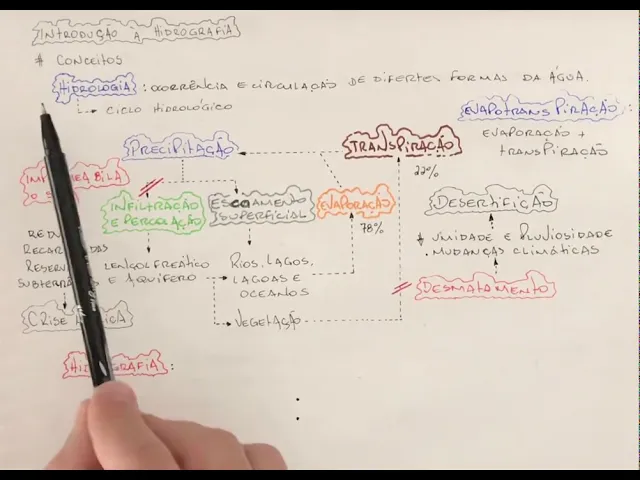 INTRODUÇÃO À HIDROGRAFIA
# CONCEITOS
HIDROLOGIA : OCORRÊNCIA E CIRCULAÇÃO DE DIFERTES FORMAS DA ÁGUA.
CICLO HIDROLÓGICO
EVAPOTRANSPIRAÇÃO :
EVAPORAÇÃO +
TRANSPIRAÇÃO
PRECIPITAÇÃO
TRANSPIRAÇÃO
22%
INFILTRAÇÃO
E PERCOLAÇÃO
ESCOAMENTO
SUPERFICIAL
EVAPORAÇÃO
78%
DESERTIFIÇÃO
UMIDADE E PLUVIOSIDADE
. MUDANÇAS CLIMÁTICAS
DESMATAMENTO
LENÇOL FREÁTICO
E AQUÍFERO
RIOS, LAGOS,
LAGOAS E
OCEANOS
VEGETAÇÃO
CRISE
: